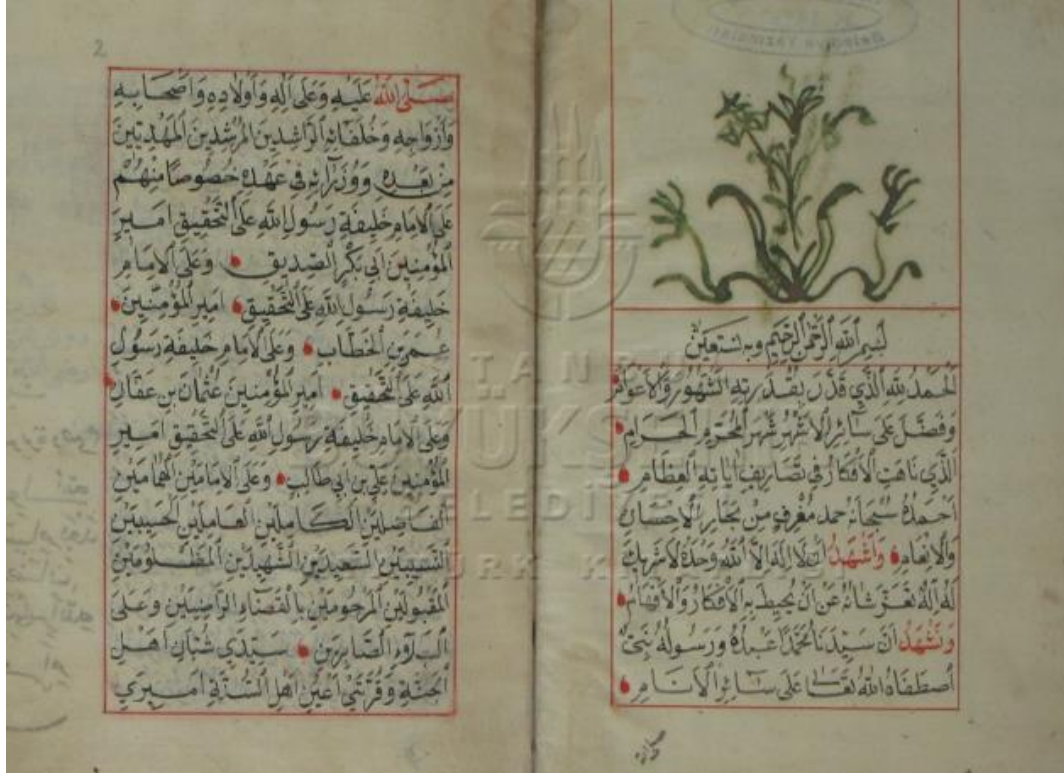 بِسْمِ اللهِ الرَّحْمٰنِ الرَّحِيمِ وَبِهِ نَسْتَعِينُ
اَلْحَمْدُ لِلّٰهِ الَّذِي قَدَّرَ بِقُدْرَتِهِ الشُّهُورَ وَالْأَعْوَامَ
وَفَضَّلَ عَلَى سَائِرِ الْأَشْهُرِ شَهْرَ الْمُحَرَّمِ الْحَرَامِ
الَّذِي تَاهَتِ الْأَفْكَارُ فِي تَصَارِيفِ اٰيَاتِهِ الْعِظَامِ
اَحْمَدُهُ سُبْحَانَهُ حَمْدَ مُغْرَفٍ مِنْ بِحَارِ الْإِحْسَانِ
وَالْإِنْعَامِ وَاَشْهَدُ اَنْ لَا اِلٰهَ اِلَّا اللهُ وَحْدَهُ لَا شَرِيكَ
لَهُ اِلٰهٌ تَعَزَّزَ شَانُهُ عَنْ اَنْ يُحِيطَ بِهِ الْأَفْكَارُ وَالْأَفْهَامُ
وَنَشْهَدُ اَنَّ سَيِّدَنَا مُحَمَّدًا عَبْدُهُ وَرَسُولُهُ نَبِيٌّ
اصْطَفَاهُ اللهُ تَعَالَى عَلَى سَائِرِ الْأَنَامِ
2
صَلَّى اللهُ عَلَيْهِ وَعَلَى اٰلِهِ وَاَوْلَادِهِ وَاَصْحَابِهِ
وَاَزْوَاجِهِ وَخُلَفَائِهِ الرَّاشِدِينَ الْمُرْشِدِينَ الْمَهْدِيِّينَ
مِنْ بَعْدِهِ وَوُزَرَائِهِ فِي عَهْدِهِ خُصُوصًا مِنْهُمْ
عَلَى الْإِمَامِ خَلِيفَةِ رَسُولِ اللهِ عَلَى التَّحْقِيقِ اَمِيرِ
الْمُؤْمِنِينَ اَبِي بَكْرٍ الصِّدِّيقِ وَعَلَى الْإِمَامِ
خَلِيفَةِ رَسُولِ اللهِ عَلَى التَّحْقِيقِ اَمِيرِ الْمُؤْمِنِينَ
عُمَرَ بْنِ الْخَطَّابِ وَعَلَى الْإِمَامِ خَلِيفَةِ رَسُولِ
اللهِ عَلَى التَّحْقِيقِ اَمِيرِ الْمُؤْمِنِينَ عُثْمَانَ بْنِ عَفَّانَ
وَعَلَى الْإِمَامِ خَلِيفَةِ رَسُولِ اللهِ عَلَى التَّحْقِيقِ اَمِيرِ
الْمُؤْمِنِينَ عَلِيِّ بْنِ اَبِي طَالِبٍ وَعَلَى الْإِمَامَيْنِ الْهُمَامَيْنِ
الْفَاضِلَيْنِ الْكَامِلَيْنِ الْعَامِلَيْنِ الْحَسِيبَيْنِ
النَّسِيبَيْنِ السَّعِيدَيْنِ الشَّهِيدَيْنِ الْمَظْلُومَيْنِ
الْمَقْبُولَيْنِ الْمَرْحُومَيْنِ بِالْقَضَاءِ الرَّاضِيَيْنِ وَعَلَى
الْبَلَاءِ الصَّابِرَيْنِ سَيِّدَيْ شُبَّانِ اَهْلِ
الْجَنَّةِ وَقُرَّتَيْ اَعْيُنِ اَهْلِ السُّنَّةِ اَمِيرَيِ